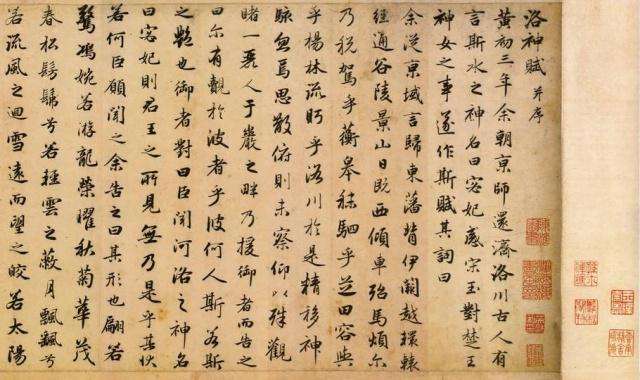 洛神賦 并序
黃初三年余朝京師還濟洛川古人有
言斯水之神名曰宓妃感宋玉對楚王
神女之事遂作斯賦其詞曰
余從京域言歸東藩背伊闕越轘轅
經通谷陵景山日既西傾車殆馬煩尔
乃稅駕乎蘅皋秣駟乎芝田容與
乎楊林流眄乎洛川於是精移神
駭忽焉思散俯則未察仰以殊觀
睹一麗人于巖之畔乃援御者而告之
曰尔有覿於彼者乎彼何人斯若斯
之豔也御者對曰臣聞河洛之神名
曰宓妃則君王之所見無乃是乎其狀
若何臣願聞之余告之曰其形也翩若
驚鴻婉若游龍榮曜秋菊華茂
春松髣髴兮若輕雲之蔽月飄飖兮
若流風之迴雪遠而望之皎若太陽